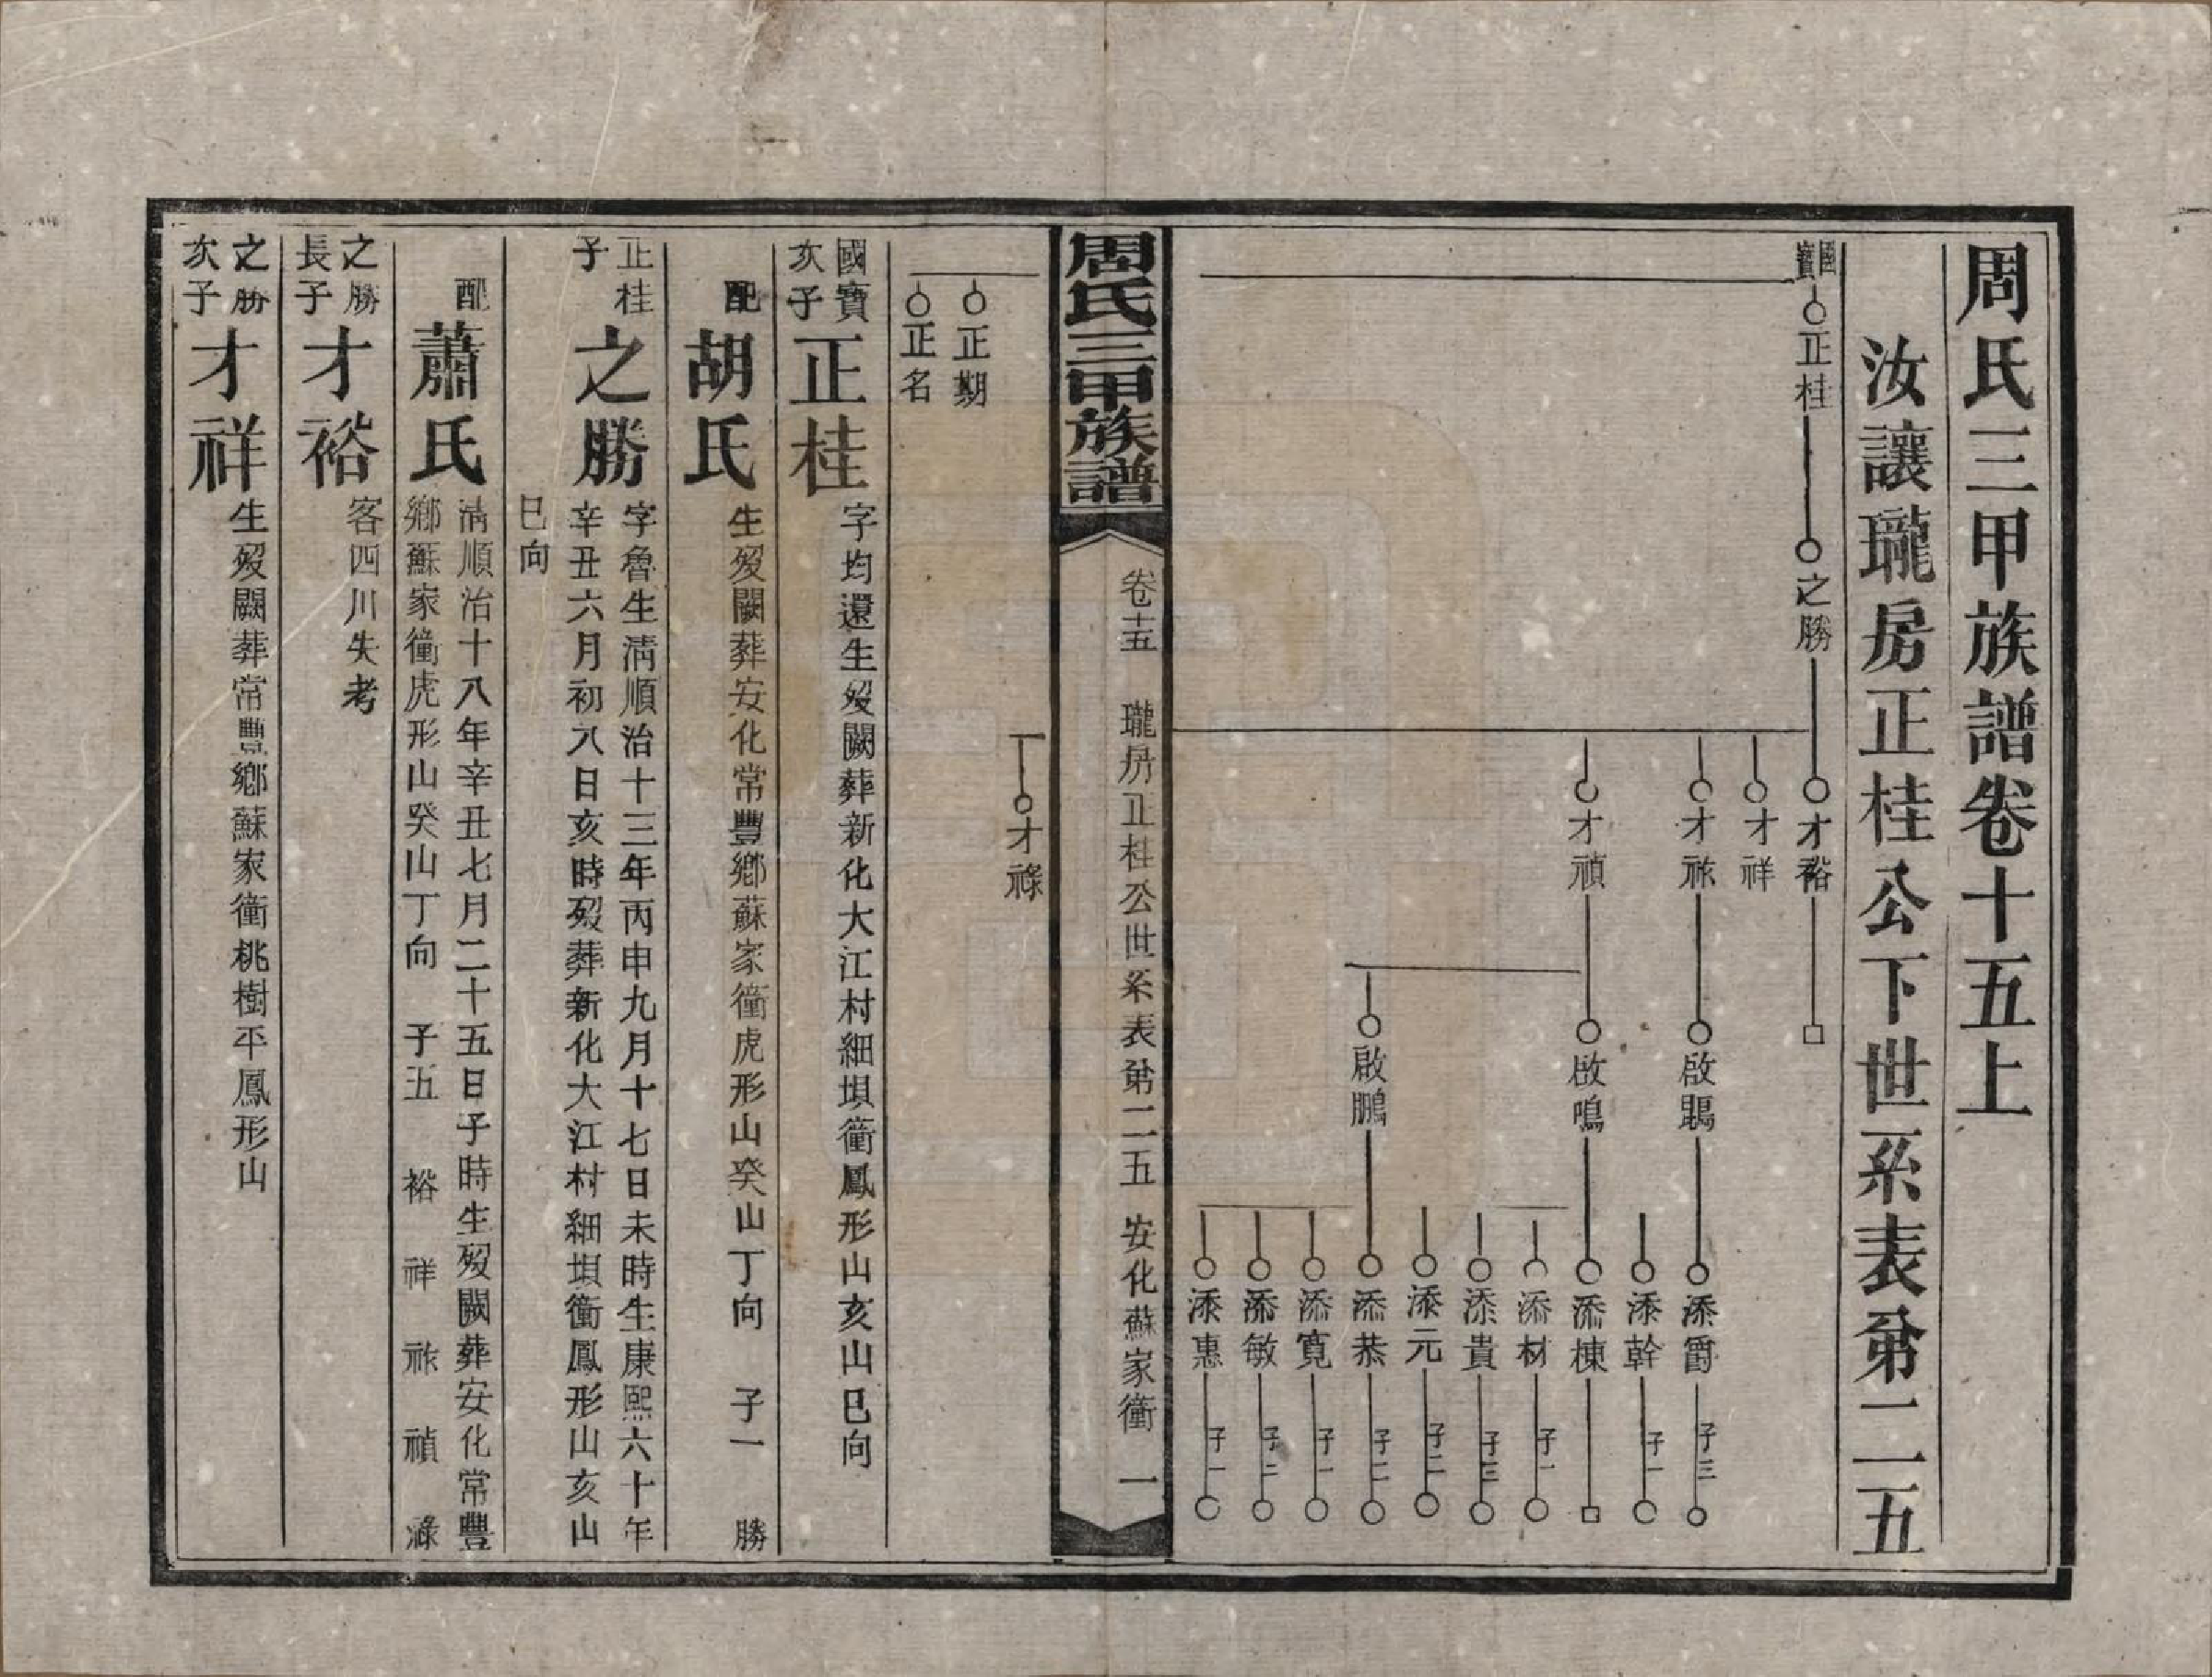 周氏三甲族譜卷十五上
汝讓瓏房正桂公下世系表第二五
國寶
正桂
之勝
才裕
才祥
才祚
啟鵾
添爵
子三
添幹
子一
才禎
啟鳴
添棟
添材
子一
添貴
子三
添元
子二
啟鵬
添恭
子二
添寬
子一
添敏
子二
添惠
子一
周氏三甲族譜
卷十五
瓏房正桂公世系表第二五
安化蘇家衝
一
才祿
正期
正名
國寶次子
正桂
字均還生歿闕葬新化大江村細垻衝鳳形山亥山巳向
配
胡氏
生歿闕葬安化常豐鄉蘇家衝虎形山癸山丁向 子一 勝
正桂子
之勝
字魯生清順治十三年丙申九月十七日未時生康熙六十年
辛丑六月初八日亥時歿葬新化大江村細垻衝鳳形山亥山
巳向
配
蕭氏
清順治十八年辛丑七月二十五日子時生歿闕葬安化常豐
鄉蘇家衝虎形山癸山丁向 子五 裕 祥 祚 禎 祿
之勝長子
才裕
客四川失考
之勝次子
才祥
生歿闕葬常豐鄉蘇家衝桃樹平鳳形山